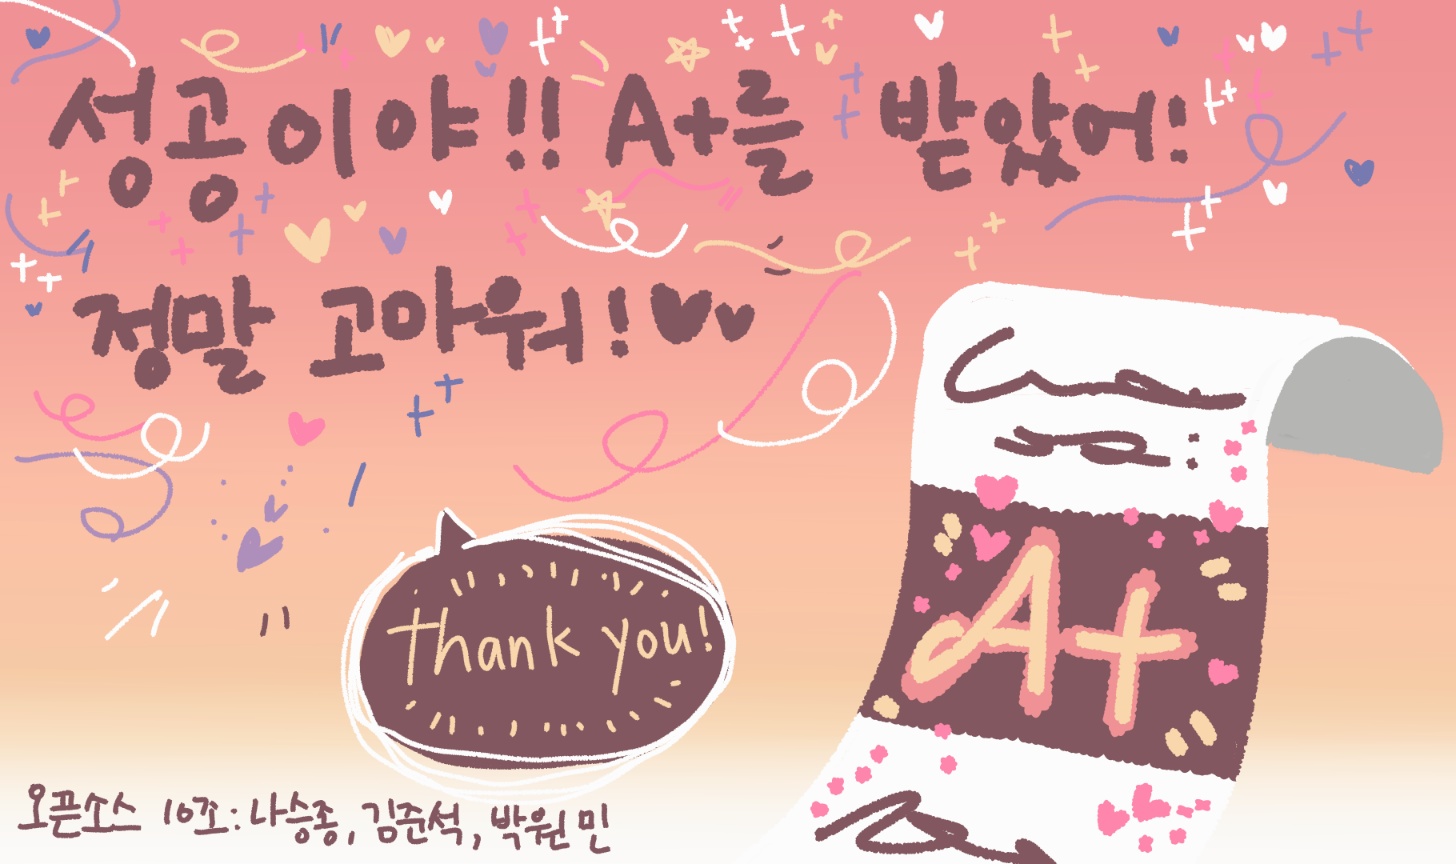 성공이야!! A+를 받았어!
정말 고마워!
thank you!
A+
오픈소스 10조: 나승종, 김준석, 박원민